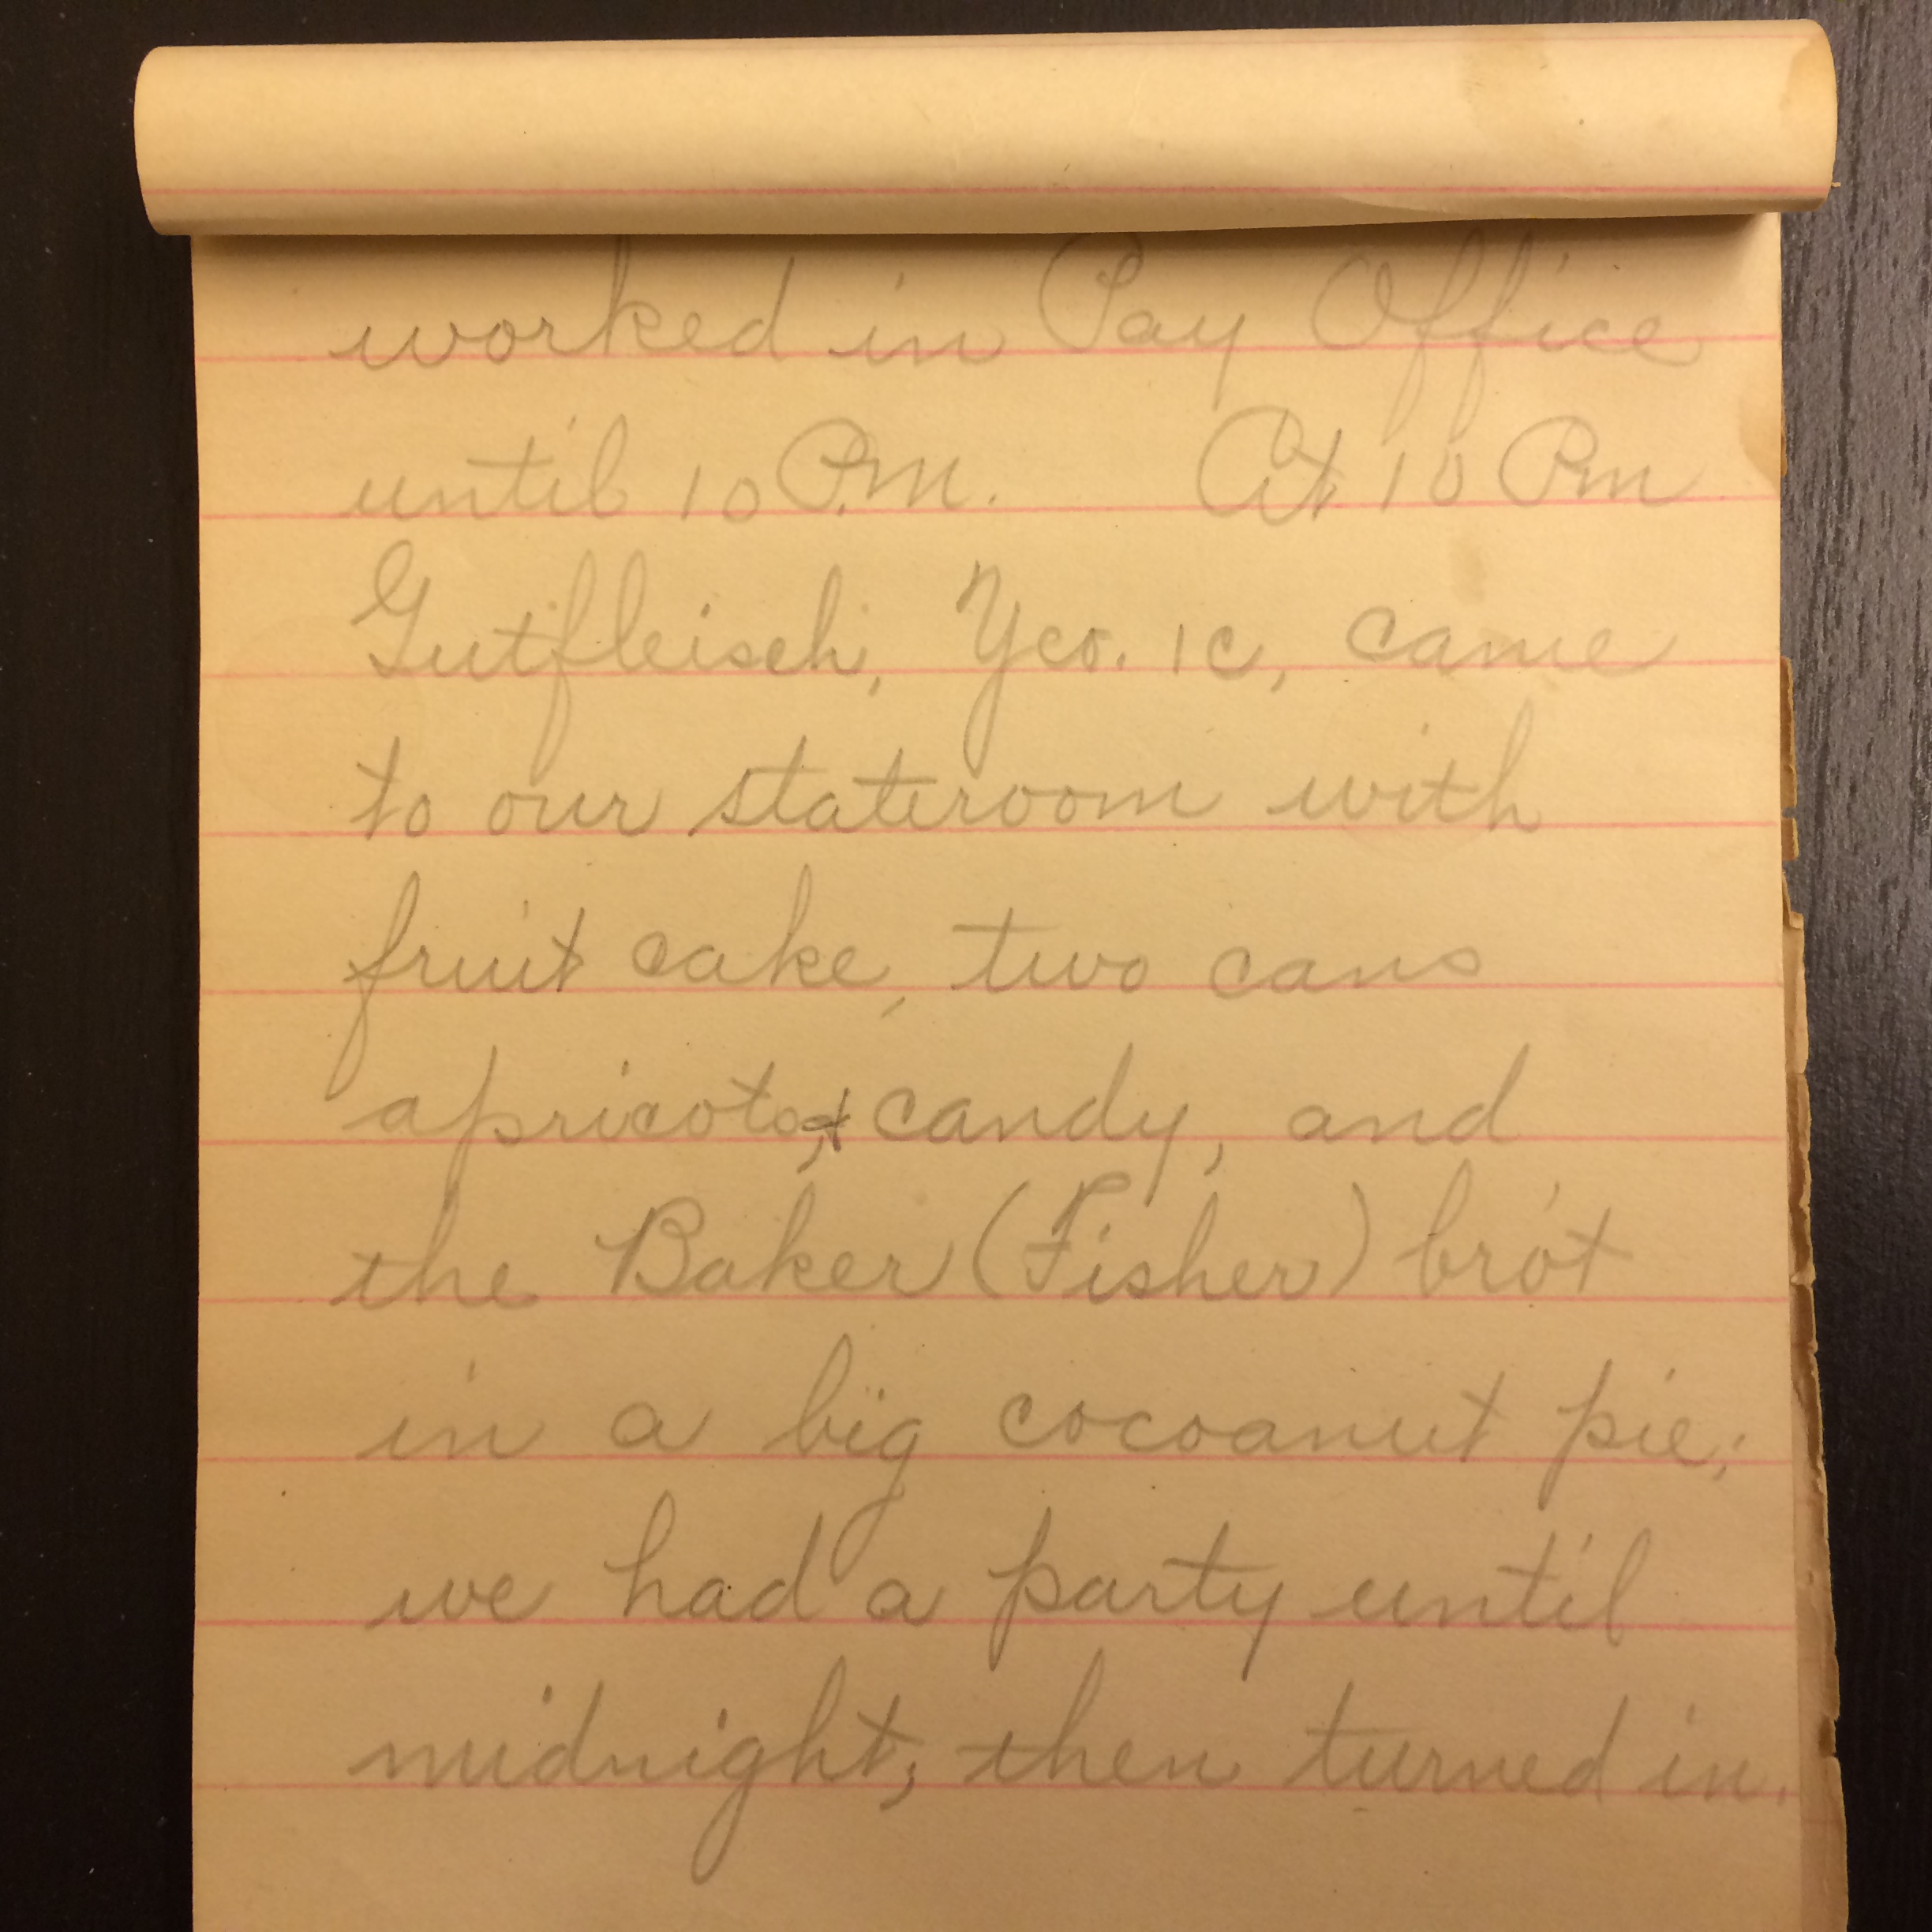 worked in Pay Office
until 10 P.M. At 10 Pm
Gutfleisch, Yeo. 1c, came
to our stateroom with
fruit cake, two cans
apricots, & candy, and
the Baker (Fisher) bro't
in a big cocoanut pie;
we had a party until
midnight; then turned in.